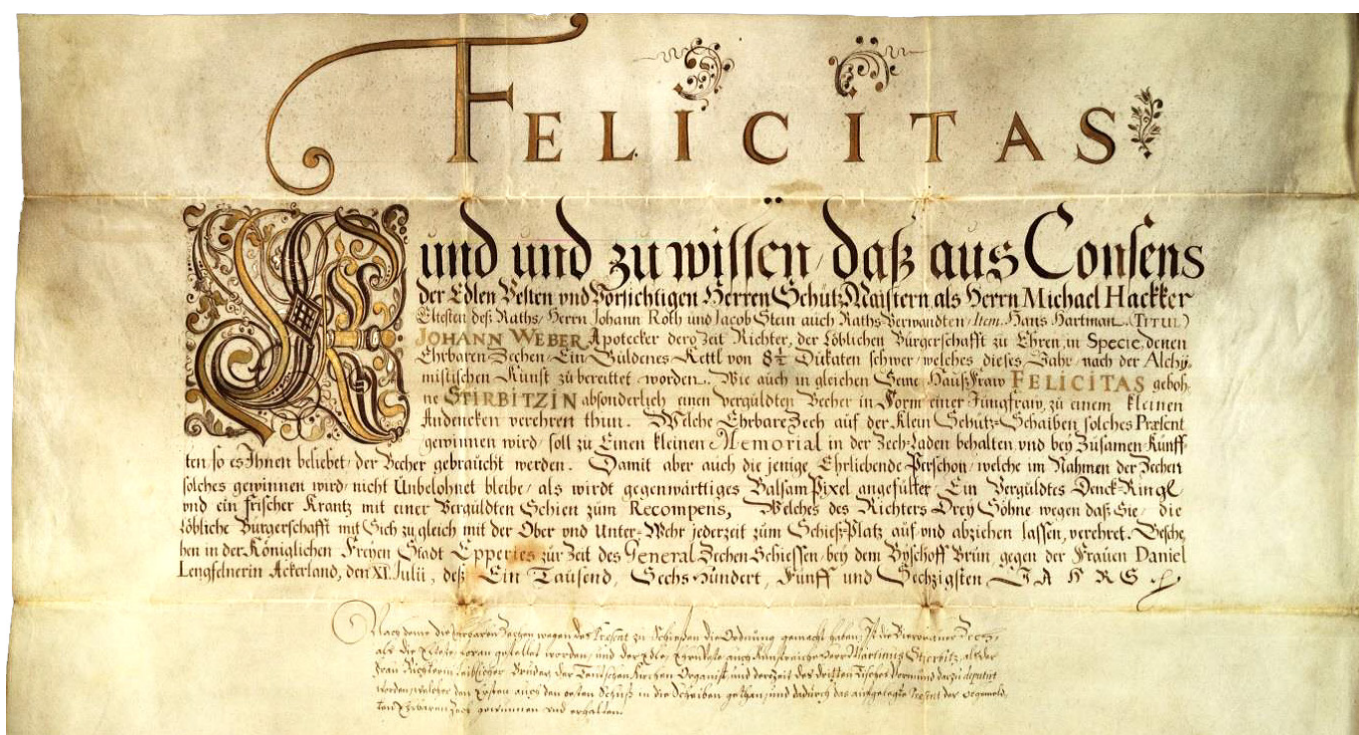 FELICITAS
Kund und zu wissen/ daß aus Consens
der Edlen Vesten vnd Vorsichtigen Herren SchützMaistern als Herrn Michael Hackker
Eltesten deß Raths/ Herrn Johann Roth und Jacob Stein auch Raths Verwandten/ Item. Hans Hartman. (TITUL)
JOHANN WEBER Apotecker dero Zeit Richter, der Löblichen Bürgerschafft zu Ehren, in Specie, denen
Ehrbaren Zechen/ Ein Güldenes Kettl von 8½ Dukaten schwer/ welches dieses Jahr/ nach der Alchÿ
mistischen Kunst zubereittet worden. Wie auch in gleichen Seine HaußFraw FELICITAS geboh
ne STIRBITZIN absonderlich einen vergüldten Becher in Form einer Jungfraw, zu einem kleinen
Andencken verehren thun. Welche Ehrbare Zech auf der Klein Schütz-Schaiben solches Præsent
gewinnen wird/ soll zu Einen kleinen Memorial in der Zech-Laden behalten vnd bey Zusamen Künff-
ten/ so es Ihnen beliebet/ der Becher gebraucht werden. Damit aber auch die jenige Ehrliebende Perschon/ welche im Nahmen der Zechen
solches gewinnen wird/ nicht Unbelohnet bleibe/ als wirdt gegenwärttiges Balsam Pixel angefülter/ Ein Vergüldtes Denck-Ringl
vnd ein frischer Krantz mit einer Vergüldten Schien zum Recompens, Welches des Richters Drey Söhne wegen daß Sie/ die
löbliche Bürgerschafft mit Sich zu gleich mit der Ober vnd Unter-Wehr jederzeit zum Schieß-Platz auf vnd abziehen lassen, verehret. Besche
hen in der Königlichen Freyen Stadt Epperies zur Zeit des General Zechen Schiessen/ bey dem Byschoff Brün, gegen der Frauen Daniel
Lengfelnerin Ackerland, den XI. Julii, deß Ein Tausend, Sechs Hundert, Fünff und Sechzigsten JAHRS
Nach deme die Ehrbaren Zechen wegen des Present zu Schießen die Ordnung gemacht haben, Ist die Zech,
als die Elteste, voran gestellet worden, und der Edle, auch Kunstreiche Herr Martinus Stierbitz, als der
Frau Richterin leiblicher Bruder, der Teutschen Kirchen Organist, und derzeit des dritten Tisches Vormund darzu deputirt
worden, welcher den Ersten auch den besten Schuß in die Scheiben gethan, und dadurch das aufgesetzte Present der
Ehrbaren Zech gewunnen vnd erhalten.